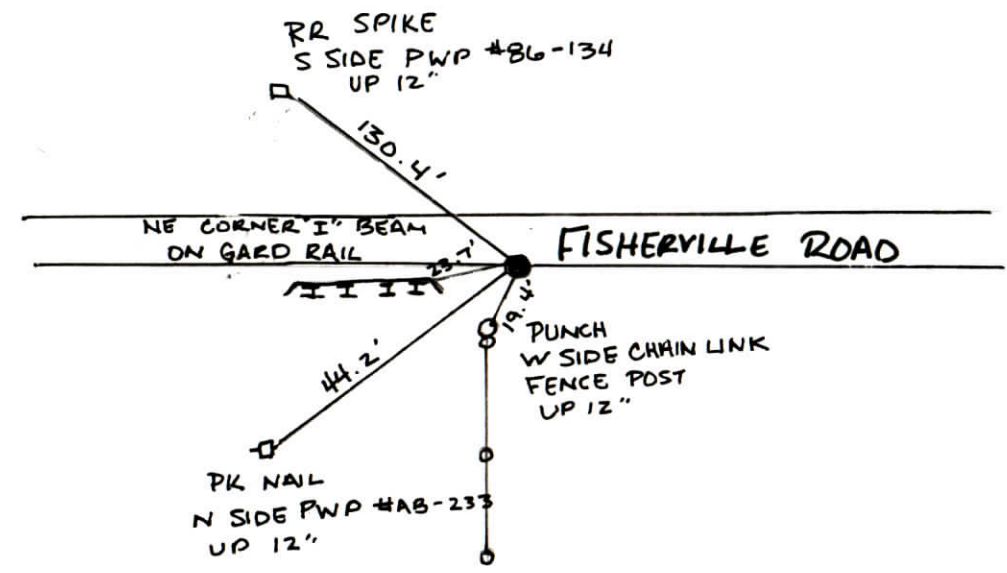 RR SPIKE
S SIDE PWP #86-134
UP 12"
130.4'
NE CORNER "I" BEAM
ON GARD RAIL
FISHERVILLE ROAD
23.7'
I I I I
19.4'
PUNCH
W SIDE CHAIN LINK
FENCE POST
UP 12"
44.2'
PK NAIL
N SIDE PWP #AB-233
UP 12"